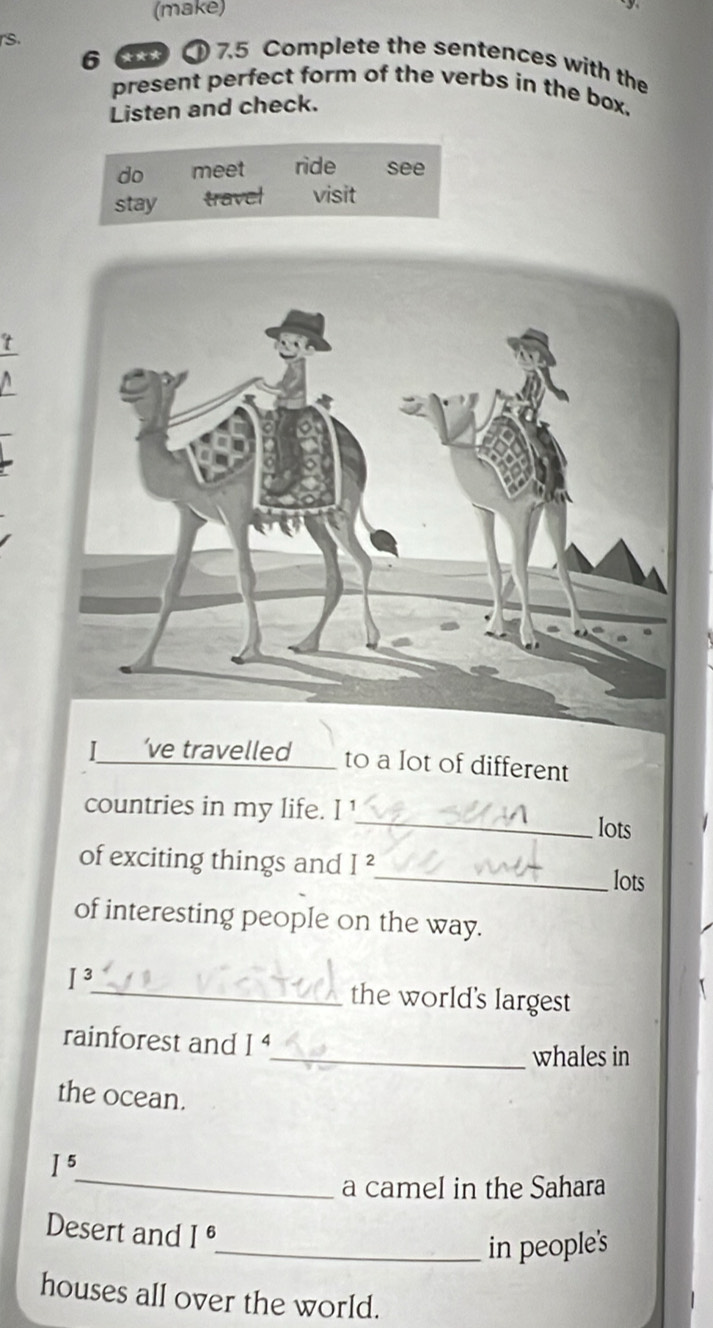 (make)
rs.
6 *** 7.5 Complete the sentences with the
present perfect form of the verbs in the box.
Listen and check.
do meet ride see
stay travel visit
't
I 've travelled to a lot of different
countries in my life. I ¹ 've seen lots
of exciting things and I ² 've met lots
of interesting people on the way.
I ³ 've visited the world's largest
rainforest and I ⁴ 've whales in
the ocean.
I ⁵ a camel in the Sahara
Desert and I ⁶ in people's
houses all over the world.